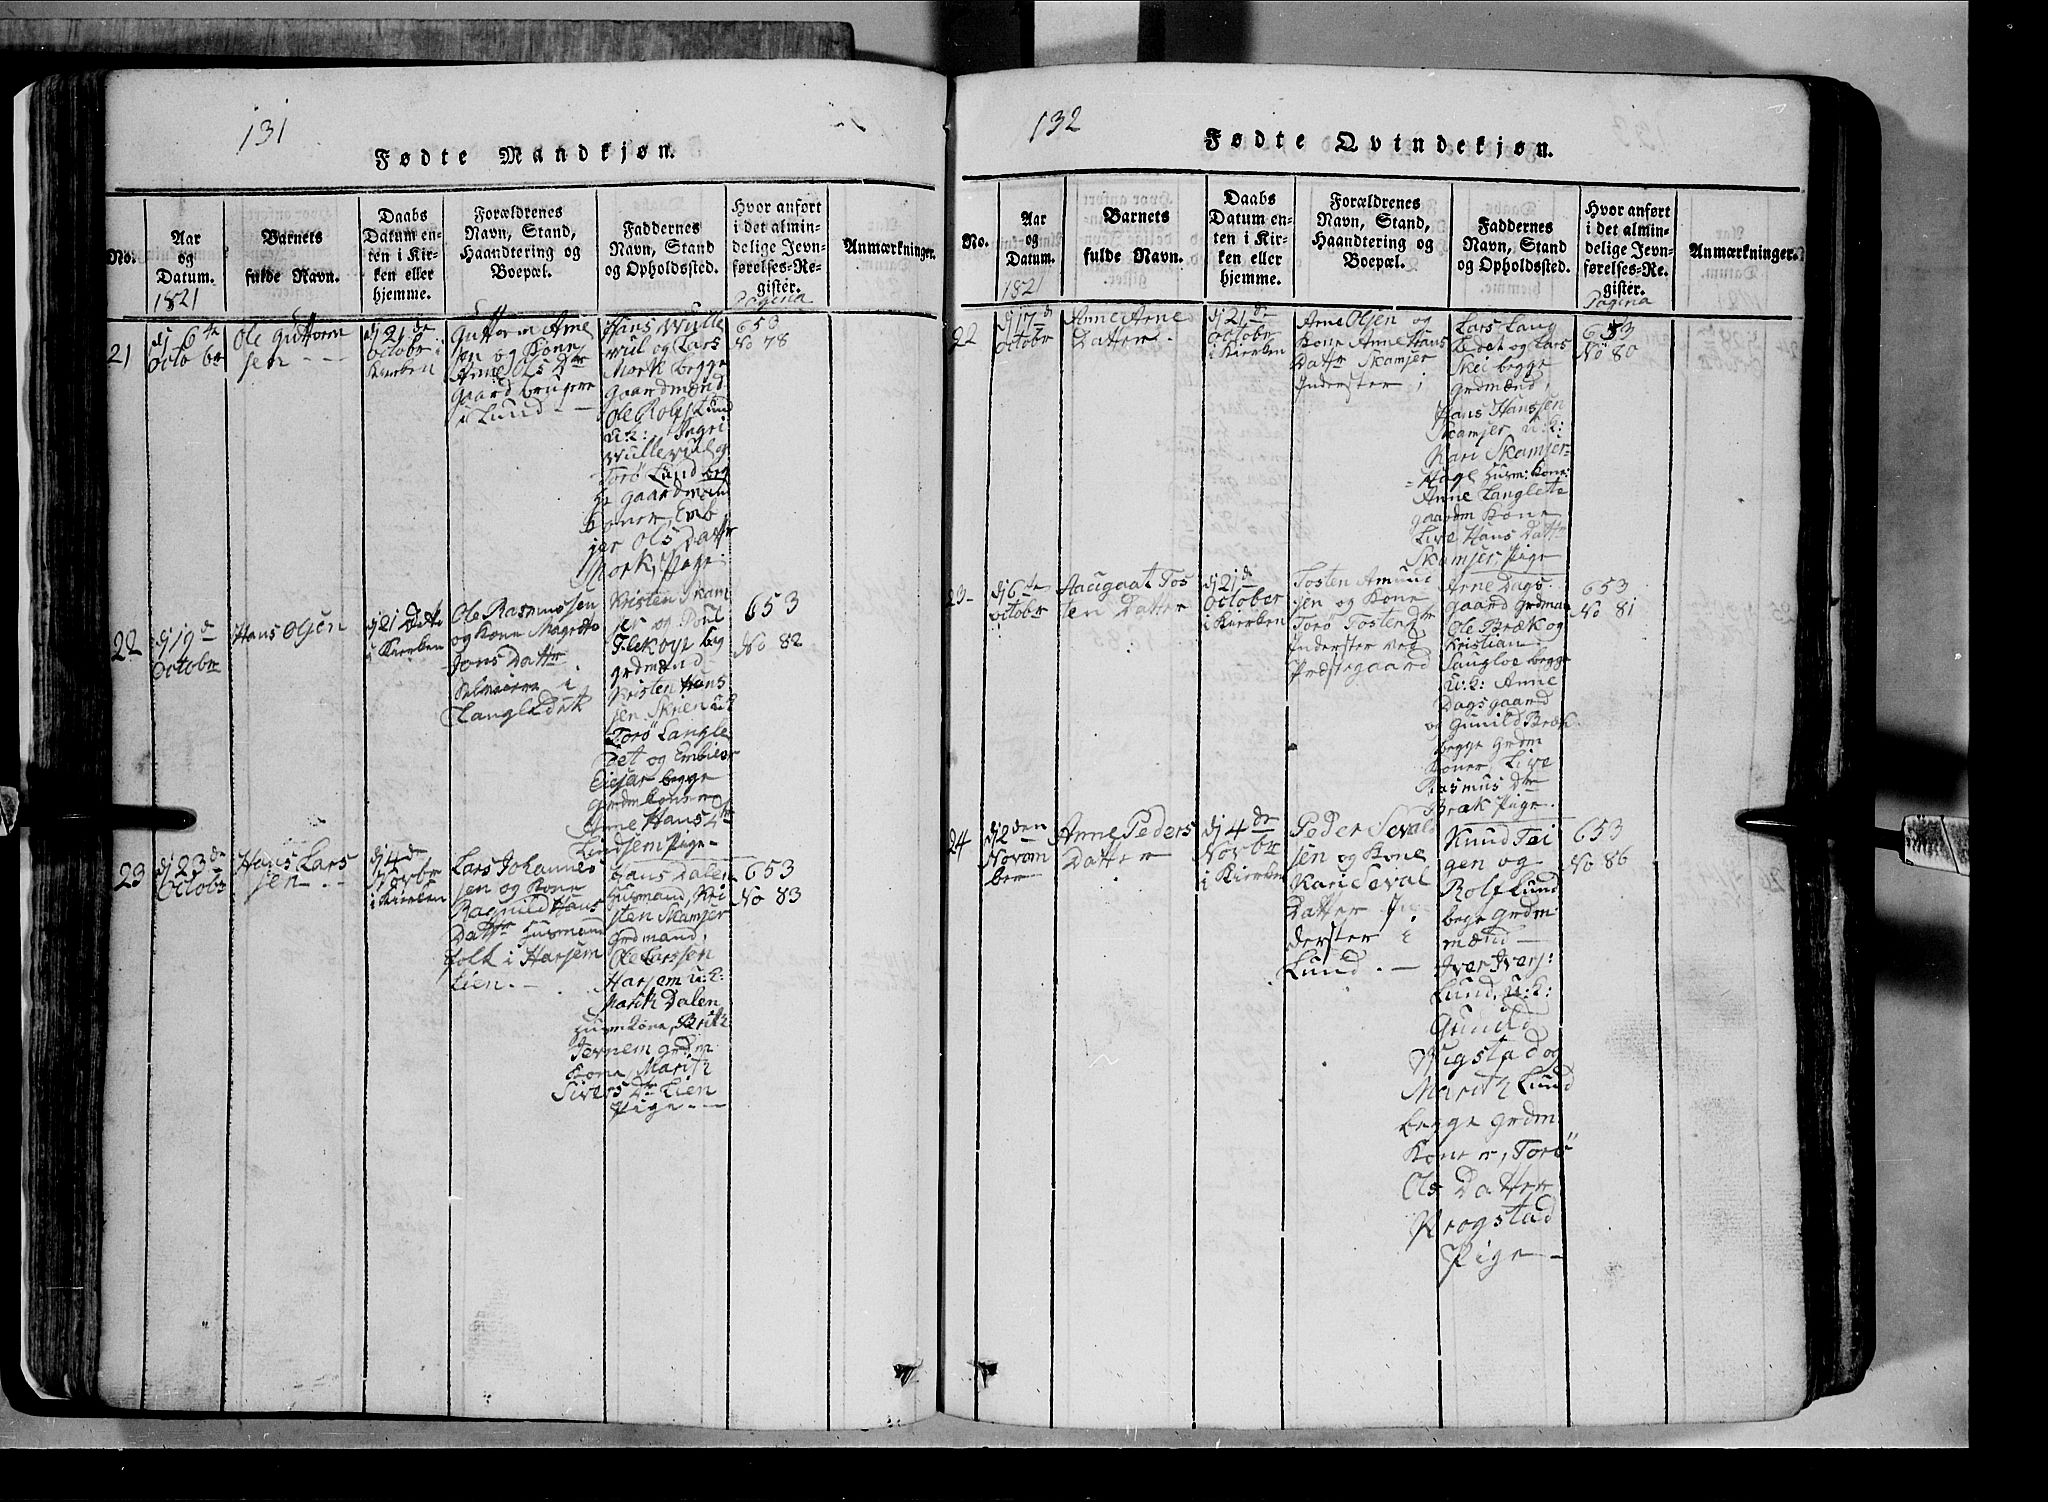 131
Fødte Mandkjøn.
No.
Aar
og
Datum.
1821
Barnets
fulde Navn.
Daabs
Datum en-
ten i Kir-
ken eller
hjemme.
Forældrenes
Navn, Stand,
Haandtering og
Boepæl.
Faddernes
Navn, Stand
og Opholdssted.
Hvor anført
i det almin-
delige Jevn-
førelses-Re-
gister.
Pagina
Anmærkninger.
21
dj 6te
Octobr
Ole Guttorm
sen
dj 21de
Octobr i
Kierken
Guttorm Arne
sen og Kone
Anne Ols Dtr
gaard brugere
i Lund
Hans Wulle
wul og Lars
Mork begge
gaardmænd
Ole Rolfs Lund
u:k: Ingri
Wullewul og
Torø Lund beg
ge gaardmand
koner, Emb
jør Ols Dattr
Mork, Pige
653
No 78
22
dj 19de
Octobr
Hans Olsen
dj 21 Dette
i Kierken
Ole Rasmussen
og Kone Magrette
Jons Dattr
i
Langledet
Kristen Skam
ser og Poul
Flekøye beg
grdmænd
Kristen Hans
sen Skrien u:k
Torø Langle
det og Embiør
Eisjar begge
grdm koner
Anne Hans Dtr
Lindsem Pige
653
No 82
23
dj 23de
Octobr
Hans Lars
sen
dj 4de
Novbr
i Kierken
Lars Johannes
sen og Kone
Ragnild Hans
Dattr Husmand
folk i Harsem
Lien.
Hans Dalen
Husmand, Kri
sten Skamser
grdmand,
Ole Larssen
Harsem u:k:
Marith Dalen
Husm kone, Brith
Jernem grdm
Kone, Marith
Sivers Dr Lien
Pige
653
No 83
132
Fødte Qvindekjøn.
No.
Aar
og
Datum.
1821
Barnets
fulde Navn.
Daabs
Datum en-
ten i Kir-
ken eller
hjemme.
Forældrenes
Navn, Stand,
Haandtering og
Boepæl.
Faddernes
Navn, Stand
og Opholdssted.
Hvor anført
i det almin-
delige Jevn-
førelses-Re-
gister.
Pagina
Anmærkninger.
22
dj 17de
Octobr
Anne Arne
Datter
dj 21de
Octobr
i Kierken
Arne Olsen og
Kone Anne Hans
Dattr Skamser
Inderster i
Lars Lang
ledet og Lars
Skei begge
grdmænd,
Hans Hanssen
Skamser u:k:
Kari Skamser-
Hage Husm: Kone:
Anne Langlete
gaardm Kone
Live Hans Dattr
Skamser, Pige
653
No 80
23
dj 6te
Octobr
Haagaat Tos
ten Datter
dj 21de
October
i Kierken
Tosten Amund
sen og Kone
Torø Tostens Dtr
Inderster ved
Præstegaard
Arne Dags
gaard grdman
Ole Bræk og
Kristian
Saugloe begge
u:k: Anne
Dagsgaard
og Gunild Bræk
begge grdm
koner, Live
Rasmus Dtr
Bræk Pige.
653
No 81
24
dj 2den
Novem
ber
Anne Peders
Datter
dj 4de
Novbr
i Kierken
Peder Sevald
sen og Kone
Kari Seval
Datter In
derster i
Lund.
Knud Tei
gen og
Rolf Lund
bege grdm
mænd
Iver Ivers:
Lund, u:k:
Gunild
Wigstad og
Marith Lund
begge grdm.
Koner, Torø
Ols Datter
Krogstad
Pige
653
No 86